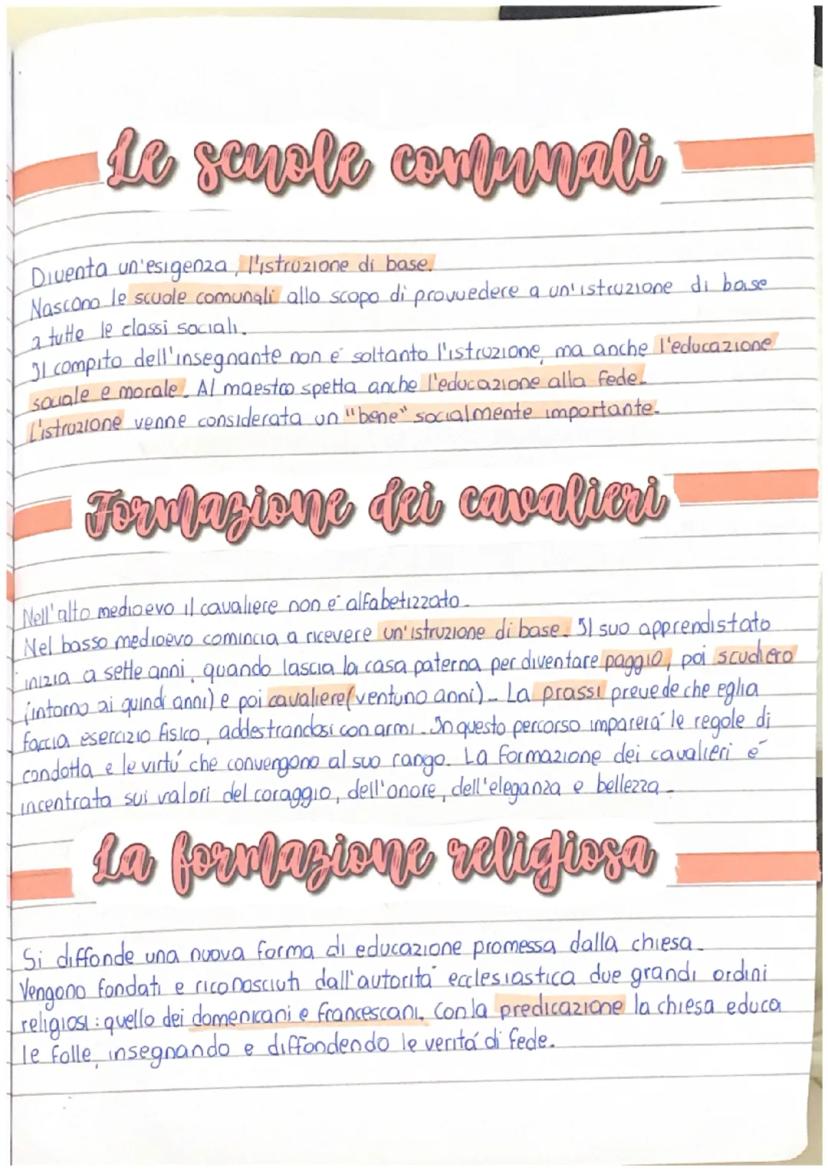 Le scuole comunali
Diventa un'esigenza, l'istruzione di base.
Nascono le scuole comunali allo scopo di provvedere a un'istruzione di base
a tutte le classi sociali.
Il compito dell'insegnante non é soltanto l'istruzione, ma anche l'educazione
sociale e morale. Al maestro spetta anche l'educazione alla fede.
L'istruzione venne considerata un "bene" socialmente importante.
Formazione dei cavalieri
Nell'alto medioevo il cavaliere non é alfabetizzato.
Nel basso medioevo comincia a ricevere un'istruzione di base. Il suo apprendistato
inizia a sette anni, quando lascia la casa paterna per diventare paggio, poi scudiero
(intorno ai quindi anni) e poi cavaliere (ventuno anni). La prassi prevede che eglia
faccia esercizio fisico, addestrandosi con armi. In questo percorso imparerá le regole di
condotta e le virtú che convengono al suo rango. La formazione dei cavalieri é
incentrata sui valori del coraggio, dell'onore, dell'eleganza e bellezza.
La formazione religiosa
Si diffonde una nuova forma di educazione promessa dalla chiesa.
Vengono fondati e riconosciuti dall'autoritá ecclesiastica due grandi ordini
religiosi: quello dei domenicani e francescani. Con la predicazione la chiesa educa
le folle, insegnando e diffondendo le veritá di fede.